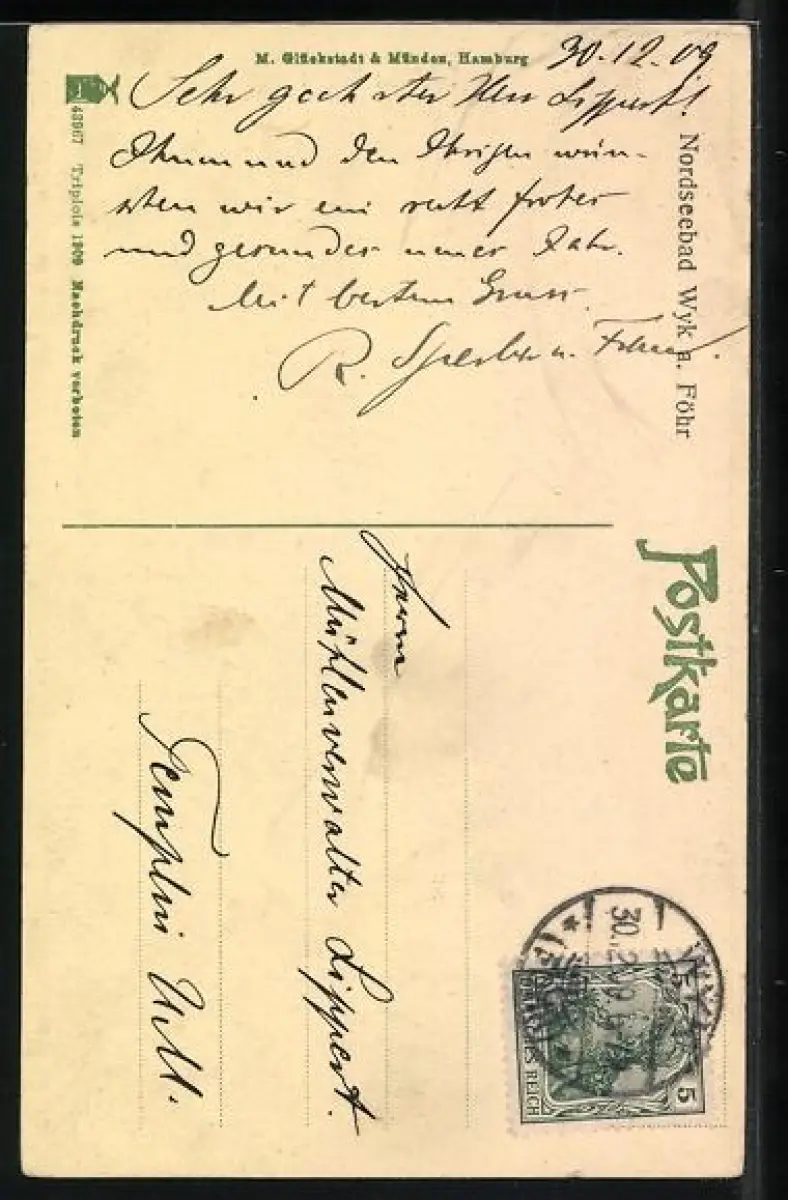 M. Glückstadt & Münden, Hamburg
30.12.09
Sehr geehrter Herr Lippert!
Ihnen und den Ihrigen wün-
schen wir ein recht frohes
und gesundes neues Jahr.
Mit bestem Gruss
R. u.
43967 Triplois 1909 Nachdruck verboten
Nordseebad Wyk a. Föhr
Postkarte
Herrn
Mühlenverwalter Lippert.
Templin U/M.
30.12.09
WYK
5
DEUTSCHES REICH
5